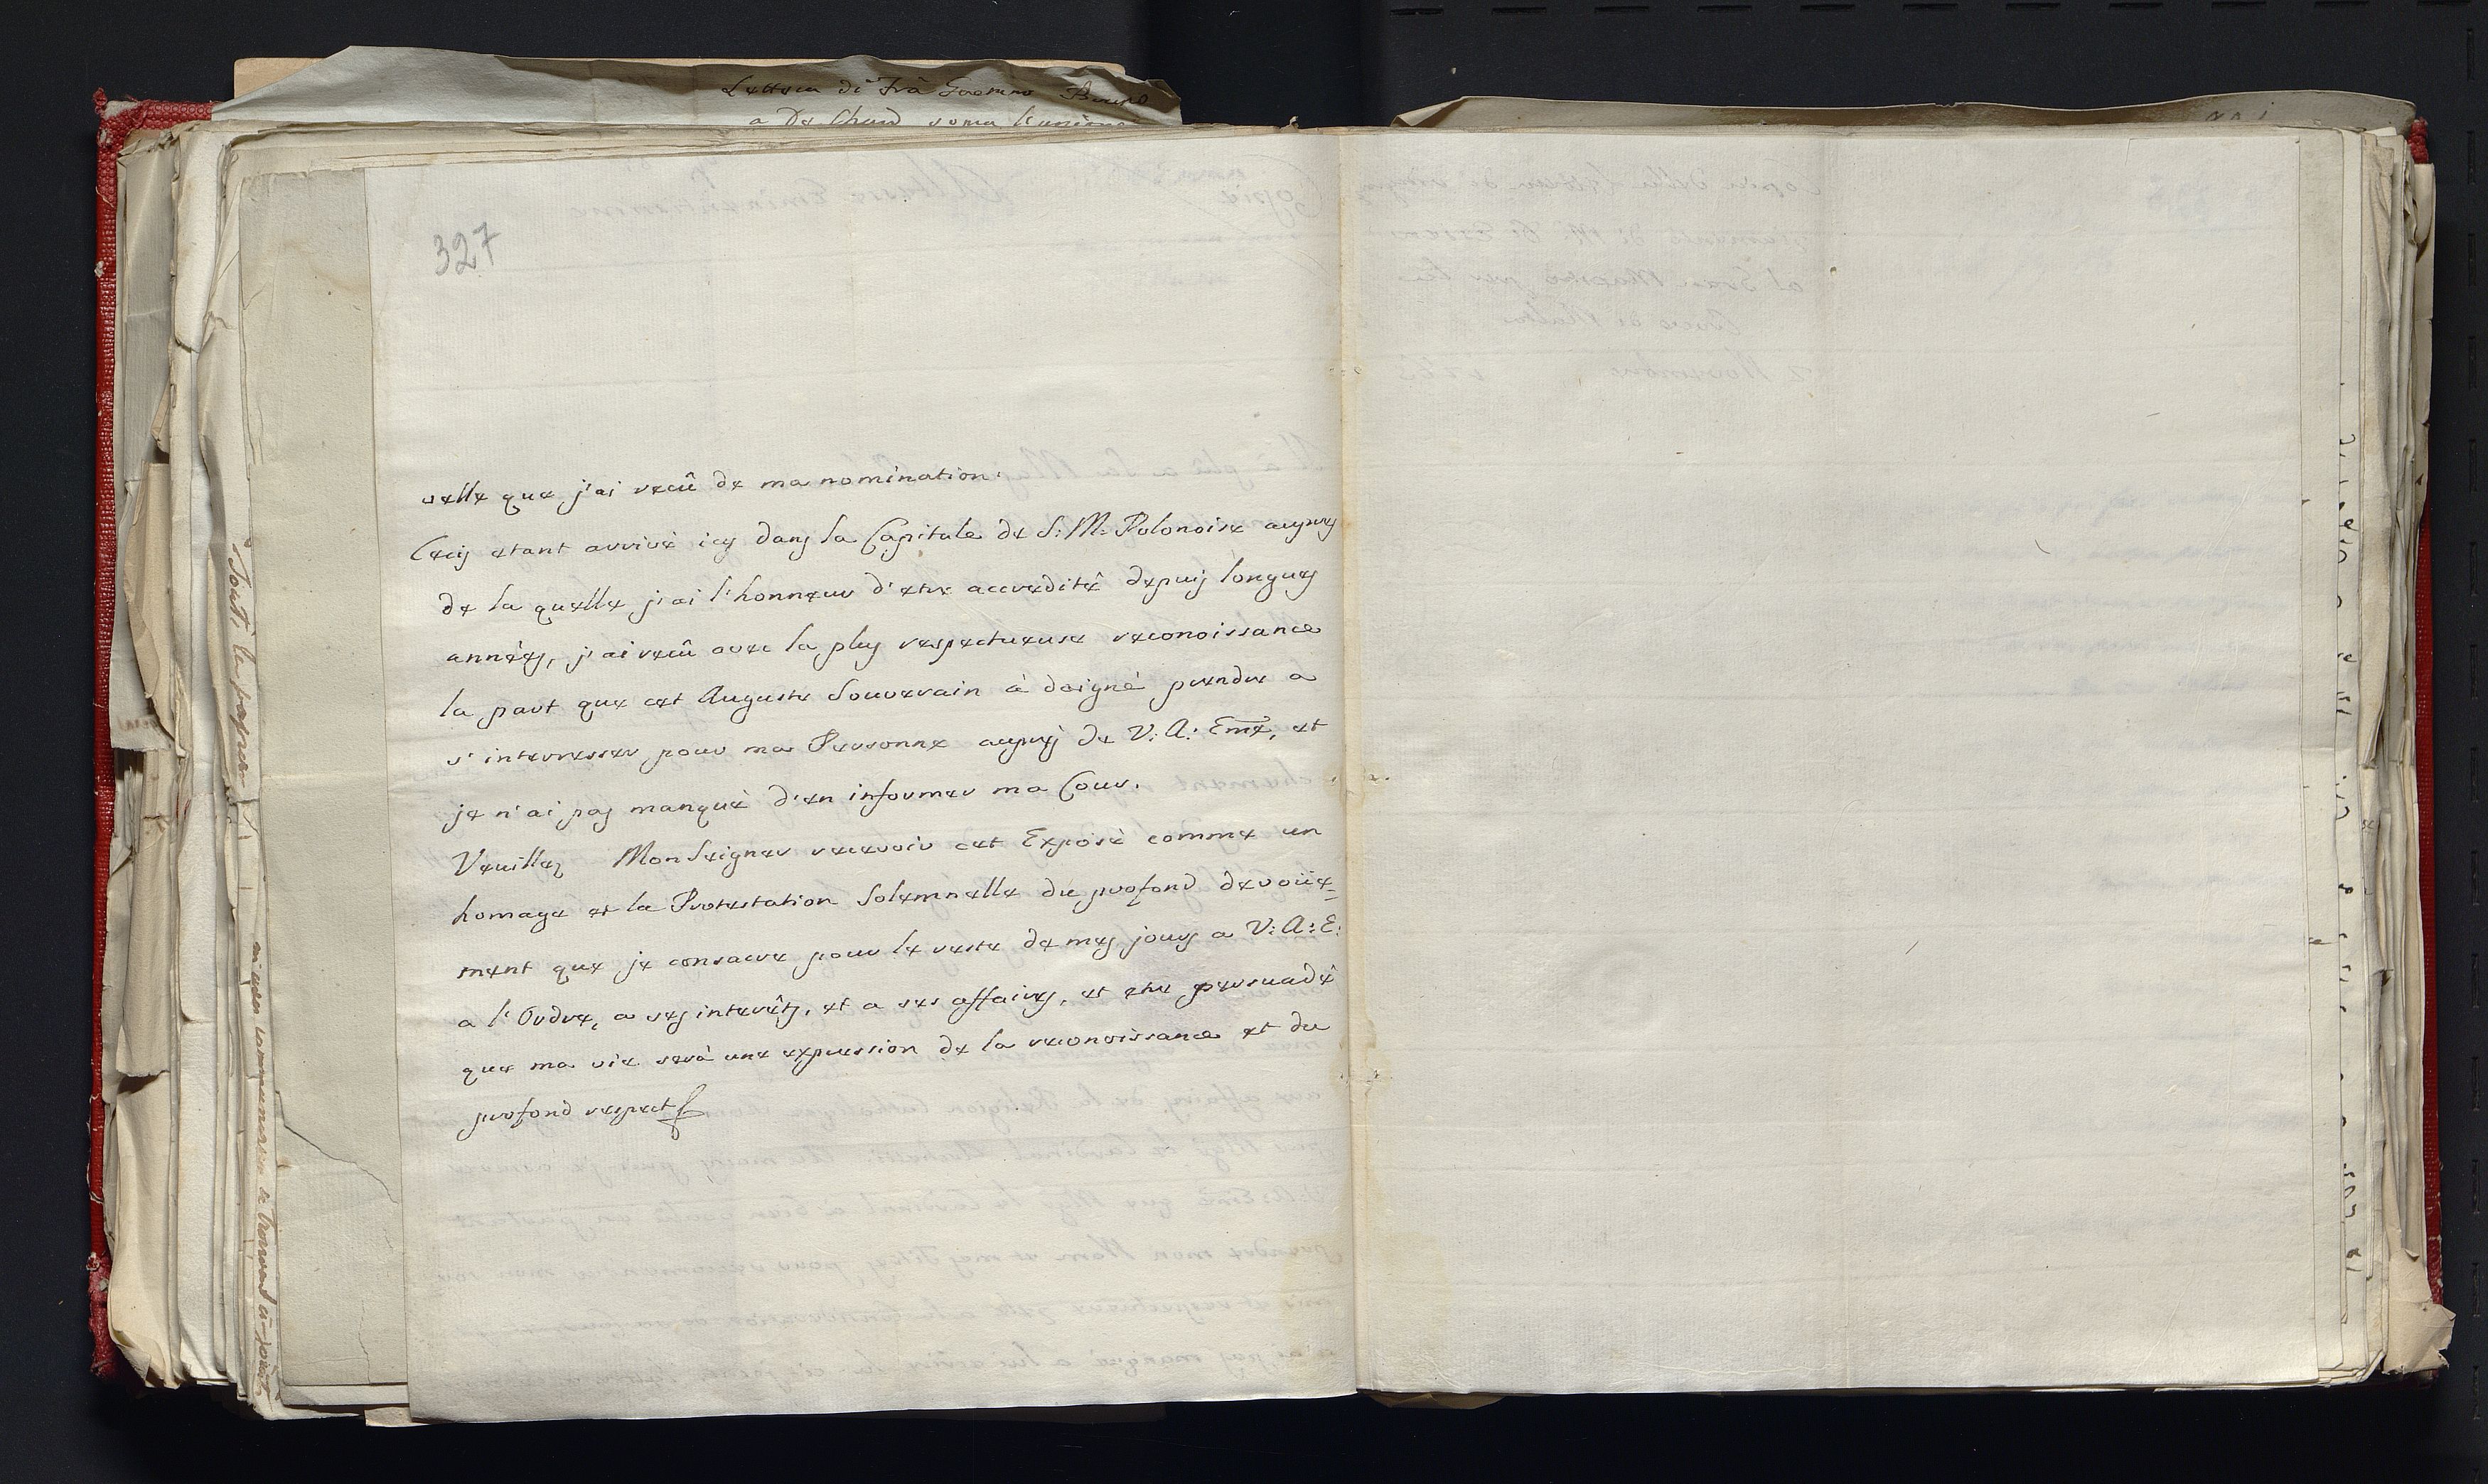 Lettera di Frà Gaetano Bruno
a De Chard
327
velle que j'ai recû de ma nomination.
Cecy etant arrivé icy dans la Capitale de S: M: Polonoise aupres
de la quelle j'ai l'honneur d'etre accredité depuis longues
années, j'ai recû avec la plus respectueuse reconoissance
la part que cet Auguste Souverain à daigné prendre a
s'interesser pour ma Personne auprés de V: A: Eme, et
je n'ai pas manqué d'en informer ma Cour.
Veuillez Monseigner recevoir cet Exposé comme un
homage et la Protestation Solemnelle du profond devoüe=
ment que je consacre pour le reste de mes jours a V: A: E:
a l'Ordre, a ses interêts, et a ses affaires, et etre persuadé
que ma vie serà une expression de la reconoissance et du
profond respect